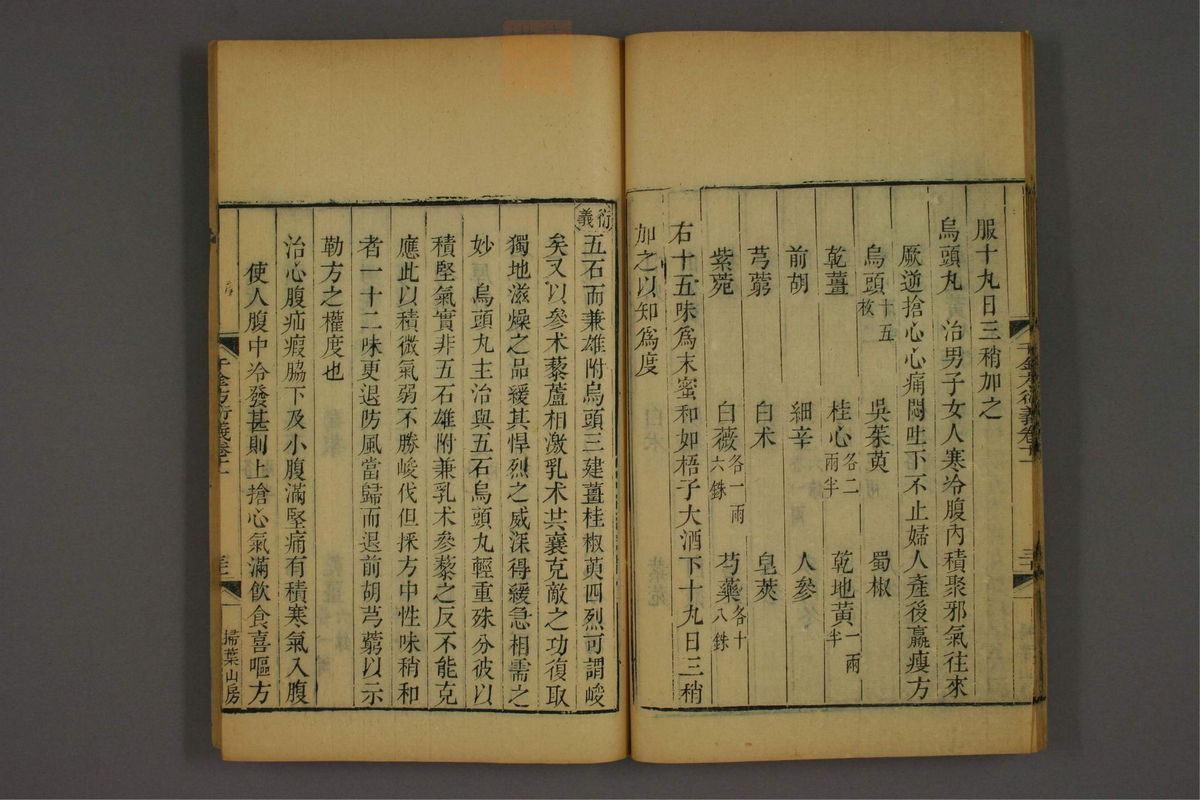 服十丸日三稍加之
烏頭丸 治男子女人寒冷腹內積聚邪氣往來
厥逆搶心心痛悶吐下不止婦人產後羸瘦方
烏頭十五枚 吳茱萸 蜀椒
乾薑 桂心各二兩半 乾地黃一兩半
前胡 細辛 人參
芎藭 白朮 皂莢
紫菀 白薇各一兩六銖 芍藥各十八銖
右十五味為末蜜和如梧子大酒下十丸日三稍
加之以知為度
千金方衍義卷十一
三十一
衍義
五石而兼雄附烏頭三建薑桂椒萸四烈可謂峻
矣又以參朮藜蘆相激乳朮共襄克敵之功復取
獨地滋燥之品緩其悍烈之威深得緩急相需之
妙 烏頭丸主治與五石烏頭丸輕重殊分彼以
積堅氣實非五石雄附兼乳朮參藜之反不能克
應此以積微氣弱不勝峻伐但採方中性味稍和
者一十二味更退防風當歸而退前胡芎藭以示
勒方之權度也
治心腹疝瘕脇下及小腹滿堅痛有積寒氣入腹
使人腹中冷發甚則上搶心氣滿飲食喜嘔方
千金方衍義卷十一
掃葉山房